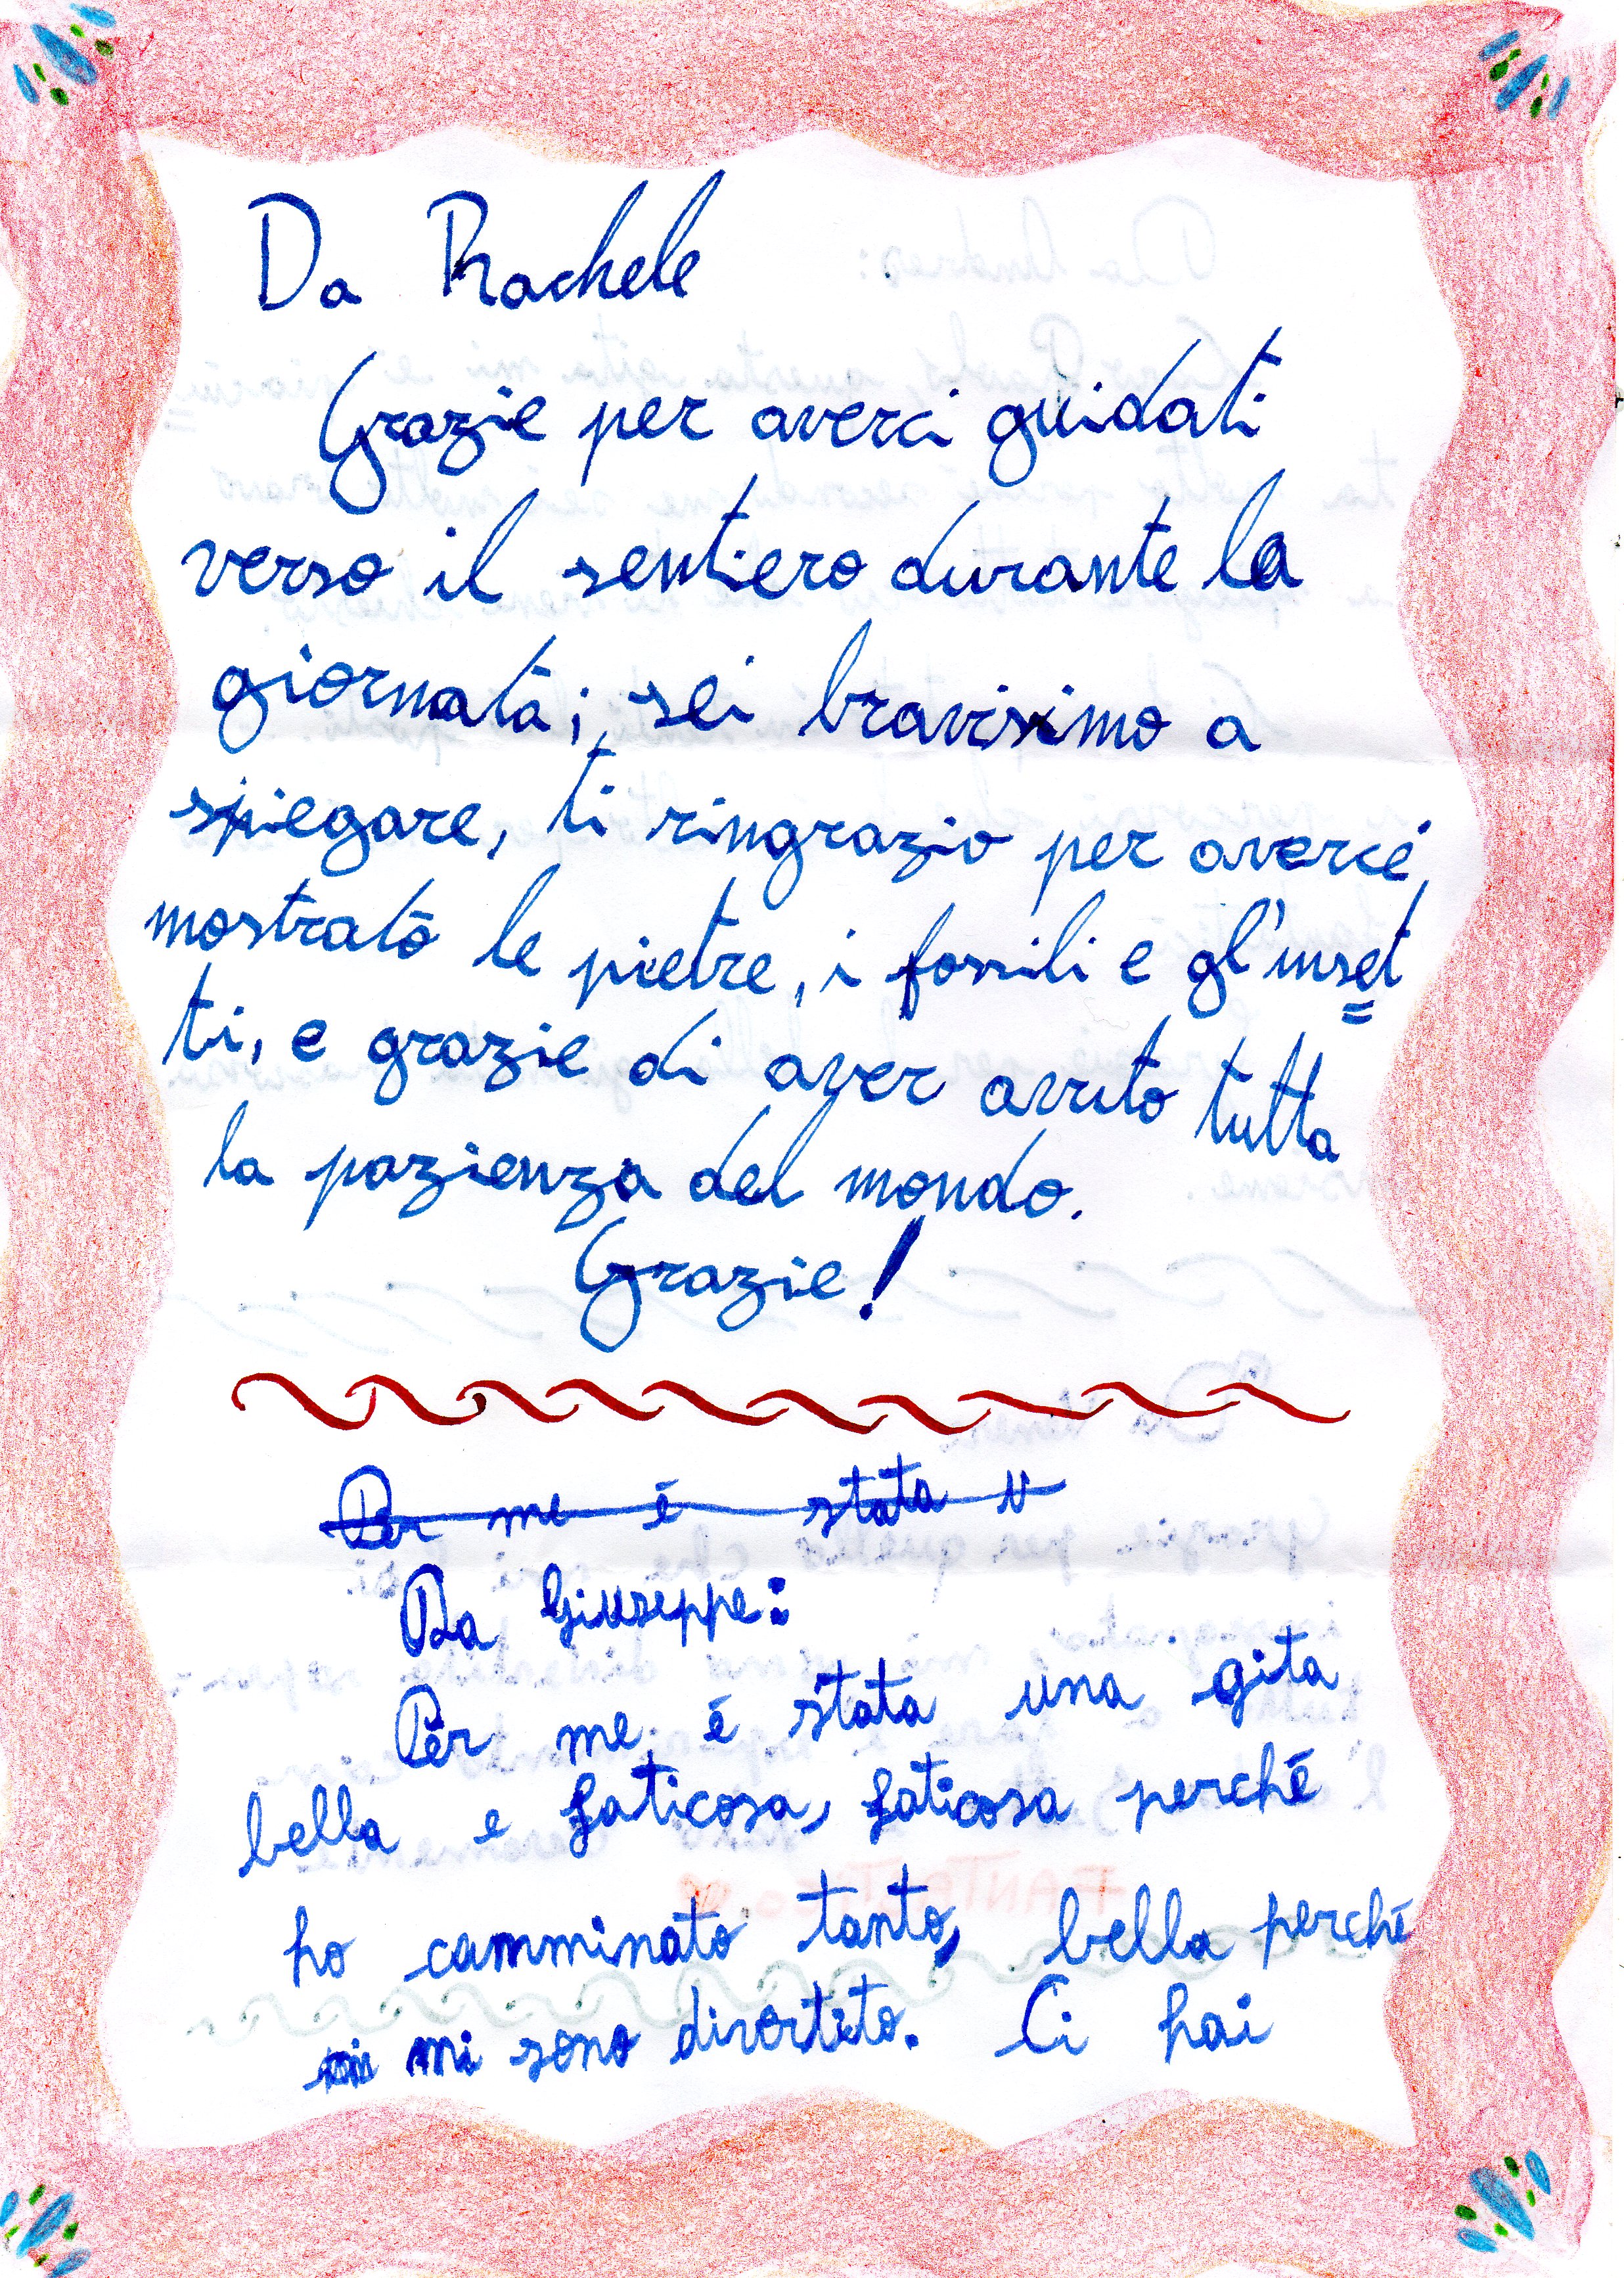 Da Rachele
Grazie per averci guidati
verso il sentiero durante la
giornata; sei bravissimo a
spiegare, ti ringrazio per averci
mostrato le pietre, i fossili e gl'inset
ti, e grazie di aver avuto tutta
la pazienza del mondo.
Grazie!
Per me è stata u
Da Giuseppe:
Per me è stata una gita
bella e faticosa, faticosa perché
ho camminato tanto, bella perché
mi sono divertito. Ci hai